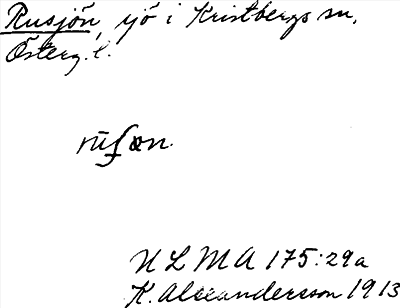 Rusjön, sjö i Kristbergs sn,
Österg. l.
rūʃøn.
ULMA 175:29a
K. Alexandersson 1913